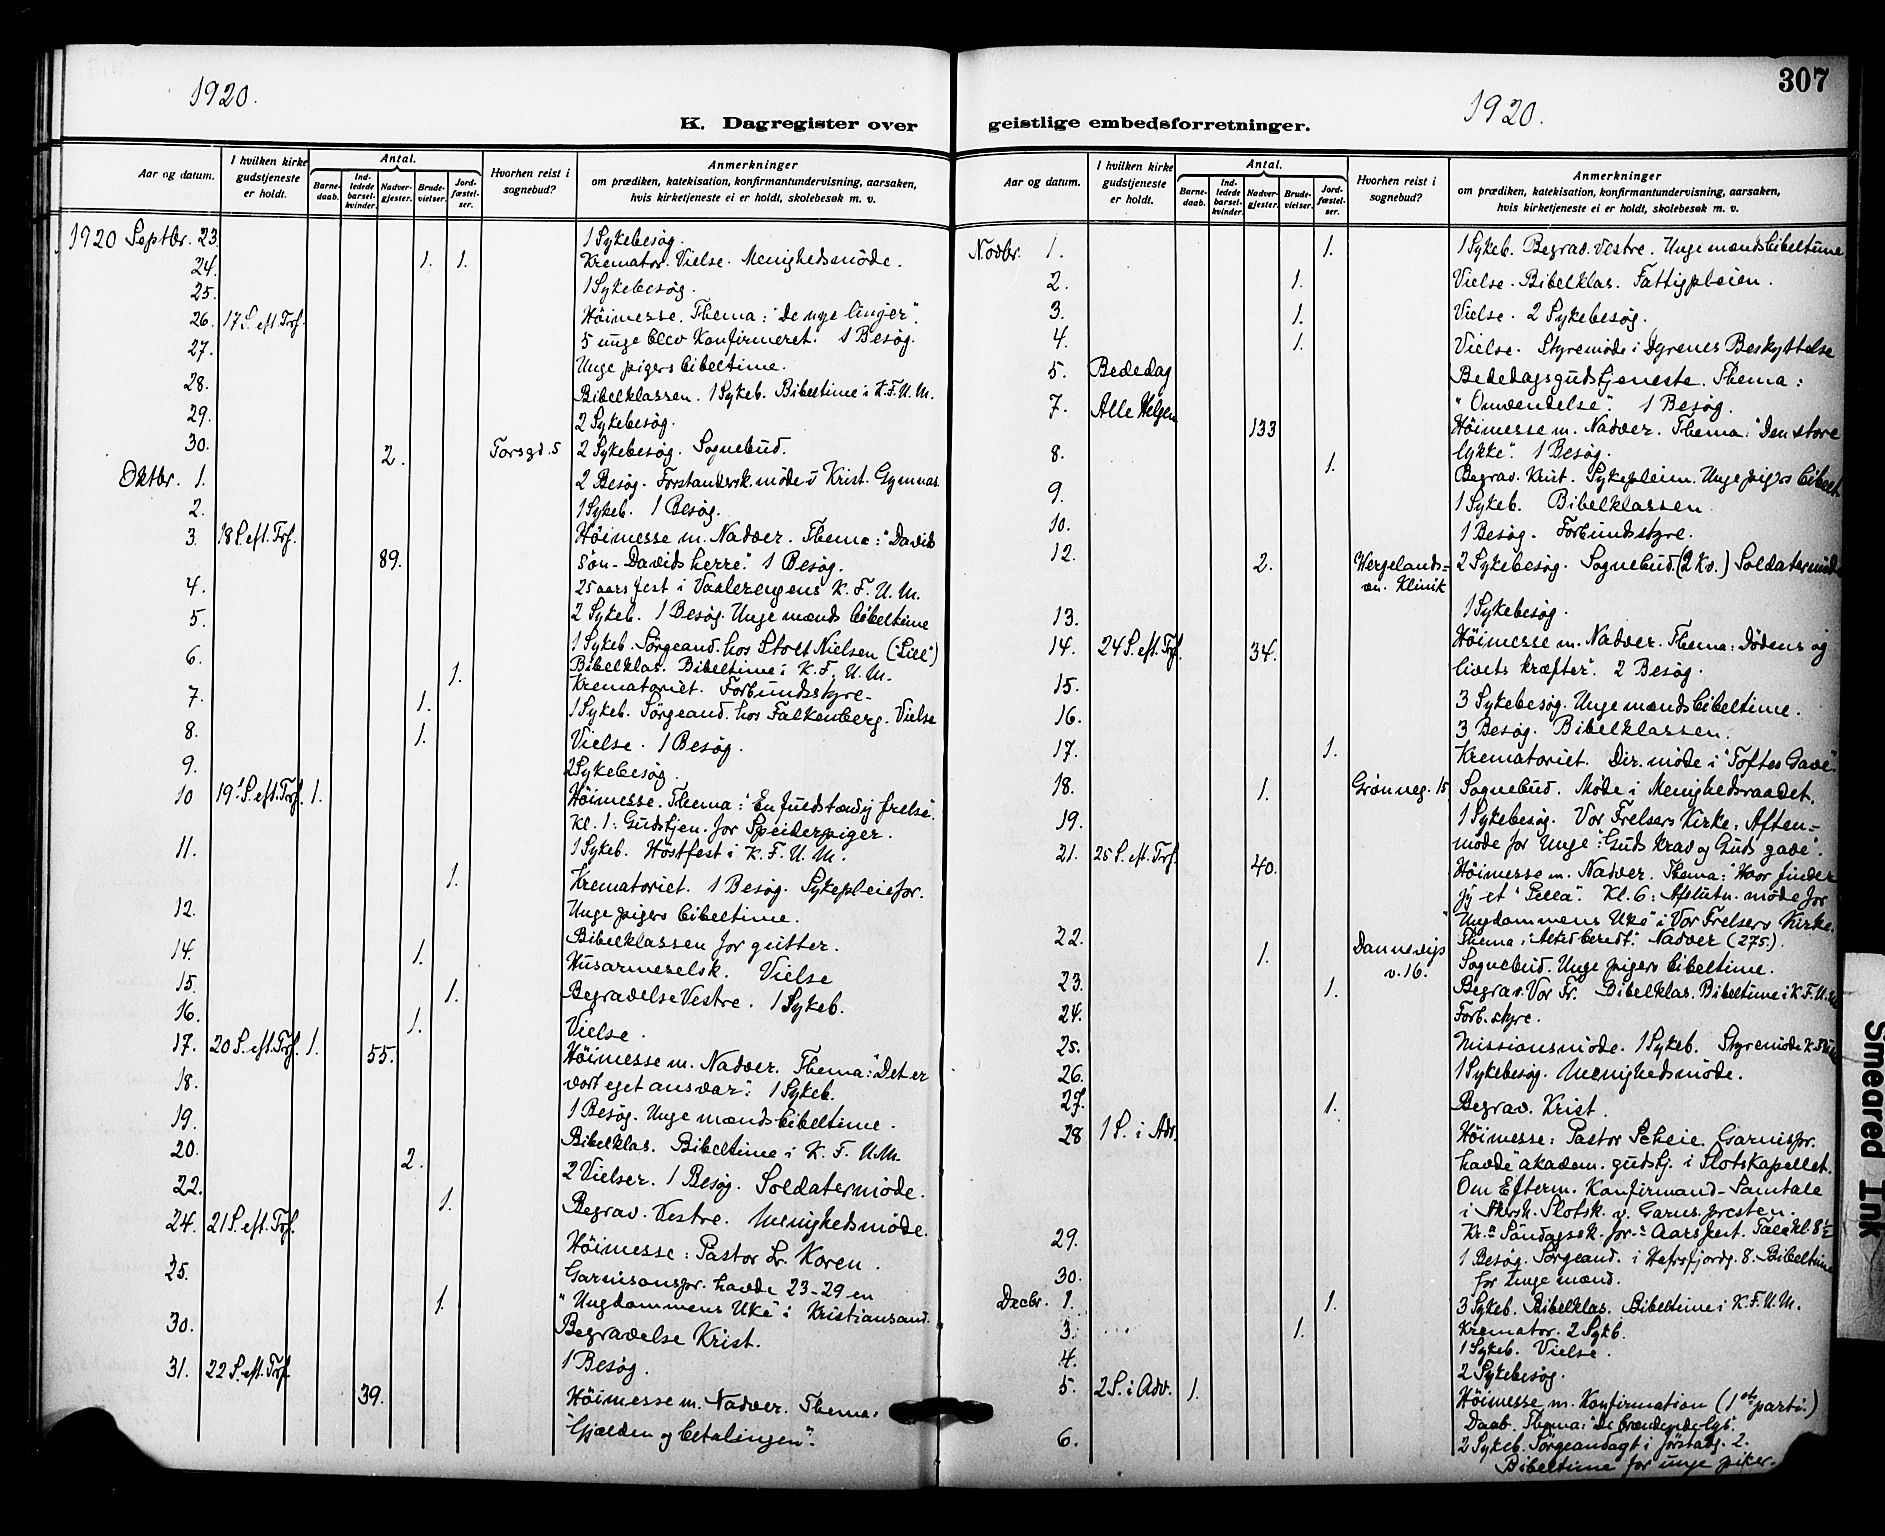 307
1920.
1920.
K. Dagregister over geistlige embedsforretninger.
Aar og datum.
I hvilken kirke gudstjeneste er holdt.
Antal.
Barnedaab.
Indledede barselkvinder.
Nadvergjester.
Brudevielser.
Jordfæstelser.
Hvorhen reist i sognebud?
Anmerkninger
om prædiken, katekisation, konfirmantundervisning, aarsaken,
hvis kirketjeneste ei er holdt, skolebesøk m. v.
1920 Septbr. 23. 1 Sykebesøg.
24. 1. 1. Kremator. Vielse. Menighedsmöde.
25. 1 Sykebesøg.
26. 17 S. eft. Trf. Höimesse. Thema: "De nye linjer".
5 unge blev Konfirmeret. 1 Besøg.
27. Unge pigers bibeltime.
28. Bibelklassen. 1 Sykeb. Bibeltime i K.F.U.M.
29. 2 Sykebesøg.
30. 2. Torsgd. 5 2 Sykebesøg. Sognebud.
Oktbr. 1. 2 Besøg. Forstandersk. möde i Krist. Gymnas
2. 1 Sykeb. 1 Besøg.
3. 18 S. eft. Trf. 89. Höimesse m. Nadver. Thema: "Davids
sön - Davids herre". 1 Besøg.
4. 25 aars fest i Vaalerengens K.F.U.M.
5. 2 Sykeb. 1 Besøg. Unge mænds bibeltime
1 Sykeb. Sörgeand. hos Stolt Nielsen ("Lill")
6. Bibelklas. Bibeltime i K.F.U.M.
1. Krematoriet. Forbundsstyre-
7. 1. 1 Sykeb. Sörgeand. hos Falkenberg. Vielse
8. 1. Vielse. 1 Besøg.
9. 2 Sykebesøg.
10 19' S. eft. Trf. 1. Höimesse. Thema: "En fuldstændig frelse".
Kl. 1: Gudstjen. for Speiderpiger.
11. 1 Sykeb. Höstfest i K.F.U.M.
1. Krematoriet. 1 Besøg. Sykepleiefor.
12. Unge pigers bibeltime.
Bibelklassen for gutter.
14. 1. Husarmeselsk. Vielse
15. 1. Begravelse Vestre. 1 Sykeb.
16. 1. Vielse.
17. 20 S. eft. Trf. 1. 55. Höimesse m. Nadver. Thema: "Det er
18. vort eget ansvar". 1 Sykeb.
19. 1 Besøg. Unge mænds bibeltime.
20. Bibelklas. Bibeltime i K.F.U.M.
22. 2. 2 Vielser. 1 Besøg. Soldatermöde.
24. 21 S. eft. Trf. 1. Begrav. Vestre. Menighedsmöde.
Höimesse: Pastor Dr. Koren.
25. Garnisonspr. havde 23-29 en
1. "Ungdommens Uke" i Kristiansand.
30. Begravelse Krist.
31. 22 S. eft. Trf. 1 Besøg.
39. Höimesse m. Nadver. Thema:
"Gjælden og betalingen".
Aar og datum.
I hvilken kirke gudstjeneste er holdt.
Antal.
Barnedaab.
Indledede barselkvinder.
Nadvergjester.
Brudevielser.
Jordfæstelser.
Hvorhen reist i sognebud?
Anmerkninger
om prædiken, katekisation, konfirmantundervisning, aarsaken,
hvis kirketjeneste ei er holdt, skolebesøk m. v.
Novbr. 1. 1. 1 Sykeb. Begrav. Vestre. Unge mænds bibeltime
2. 1. Vielse. Bibelklas. Fattigpleien.
3. 1. Vielse. 2 Sykebesøg.
4. 1. Vielse. Styremöde i Dyrenes Beskyttelse
5. Bededag Bededagsgudstjeneste. Thema:
"Omvendelse". 1 Besøg.
7. Alle Helgen 133 Höimesse m. Nadver. Thema: "Den store
lykke". 1 Besøg.
8. 1. Begrav. Krist. Sykepleien. Unge pigers bibelt.
9. 1 Sykeb. Bibelklassen.
10. 1 Besøg. Forbundsstyre.
12. 2. Wergelands- 2 Sykebesøg. Sognebud. (2 Kv.) Soldatermöde
vn. Klinik
13. 1 Sykebesøg.
14. 24 S. eft. Trf. 34. Höimesse m. Nadver. Thema: Dödens og
livets kræfter". 2 Besøg.
15. 3 Sykebesøg. Unge mænds bibeltime.
16. 3 Besøg. Bibelklassen.
17. 1. Krematoriet. Dir. möde i "Toftes Gave".
18. 1. Grønneg. 15. Sognebud. Möde i Menighedsraadet.
19. 1 Sykebesøg. Vor Frelsers Kirke: Aften-
möde for Unge: "Guds krav og Guds gave".
21. 25 S. eft. Trf. 40. Höimesse m. Nadver. Thema: "Hvor finder
jeg et "Sella". Kl. 6: Afslutn. möde for
"Ungdommens Uke" i Vor Frelsers Kirke.
Thema: "Altid beredt". Nadver (275).
22. 1. Dannevigs v. 16. Sognebud. Unge pigers bibeltime.
23. 1. Begrav. Vor Fr. Bibelklas. Bibeltime i K.F.U.M.
24. Forb. styre.
25. Missionsmöde. 1 Sykeb. Styremöde
26. 1 Sykebesøg. Menighedsmöde.
27. 1. Begrav. Krist.
28 1 S. i Adv. Höimesse: Pastor Scheie. Garnispr.
havde akadem. gudstj. i Slotskapellet.
Om Efterm. Konfirmand-Samtale
i Akersh. Slotsk. v. Garns. presten.
Kr.a Söndagssk. for.s Aarsfest. Tale kl. 8½
29. 1 Besøg. Sörgeand. i Hafrsfjordg. 8. Bibeltime
for unge mænd.
30. 3 Sykeb. Bibelklas. Bibeltime i K.F.U.M.
Decbr. 1. 1. Kremator. 2 Sykb.
3. 1. 1 Sykeb. Vielse.
4. 2 Sykebesøg.
5. 2 S. i Adv. 1. Höimesse m. Konfirmation (1ste parti.)
Daab. Thema: "De brændende lys".
6. 2 Sykeb. Sörgeandagt i Jörstadg. 2.
Bibeltime for unge piker.
Smeared Ink